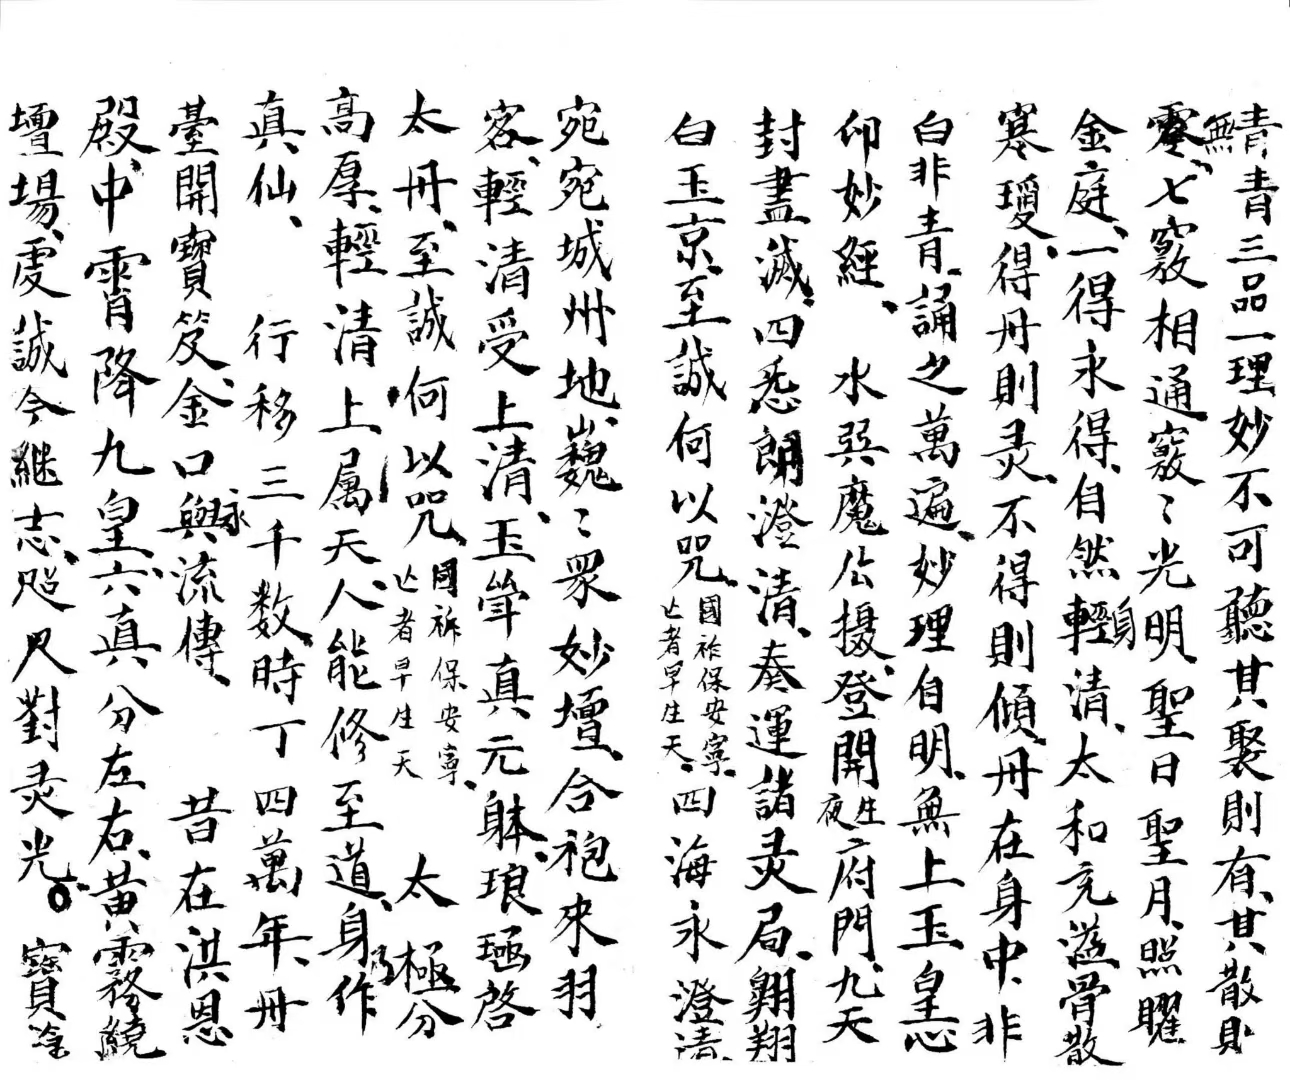 青青三品一理妙不可聽其聚則有、其散則
零、七竅相通竅〻光明、聖日聖月、照曜
金庭、一得永得、自然身輕清、太和充溢骨散
寒瓊、得丹則灵、不得則傾、丹在身中、非
白非青、誦之萬遍、妙理自明、無上玉皇心
印妙經、 水與魔公摄、登開生夜府門、九天
封盡滅、四悉朗澄清、奏運諸灵局、翱翔
白玉京、至誠何以咒、國祚保安寧、亡者早生天、四海永澄清、
宛宛城州地、巍〻衆妙壇、合袍來羽
客、輕清受上清、玉聳真元躰、琅函啓
太丹、至誠何以咒、國祚保安寧、亡者早生天 太極分
高厚、輕清上屬天、人能修至道、身乃作
真仙、 行移三千数、時丁四萬年、丹
臺開寶笈、金口與永流傳、 昔在洪恩
殿、中霄降九皇、六真分左右、黄霧繞
壇場、虔誠今繼志、咫尺對灵光、 寶淦